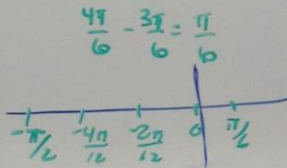 4π/6 - 3π/6 = π/6
-π/2 -4π/12 -2π/12 0 π/2